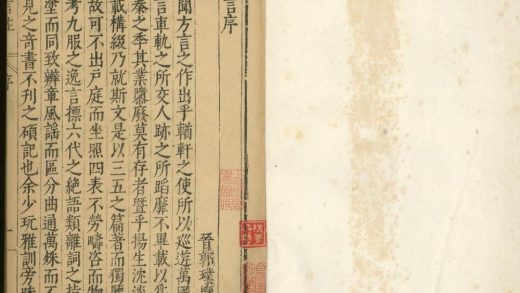 言序
晉郭璞
聞方言之作出乎輶軒之使所以巡遊萬國
言車軌之所交人跡之所蹈靡不畢載以
秦之季其業隳廢莫有存者暨乎揚生沈淡
載構綴乃就斯文是以三五之篇著而獨
故可不出戶庭而坐照四表不勞疇咨而物
考九服之逸言標六代之絕語類離詞之指
塗而同致辨章風謠而區分曲通萬殊而不
見之奇書不刊之碩記也余少玩雅訓旁味
序 一